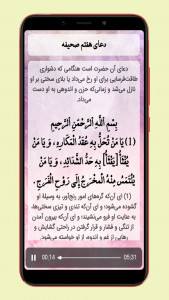 دعای هفتم صحیفه
دعای آن حضرت است هنگامی که دشواری
طاقت‌فرسایی برای او رخ می‌داد یا بلای سختی بر او
نازل می‌شد و زمانی‌که حزن و اندوهی به او دست
می‌داد.
بِسْمِ اللَّهِ الرَّحْمَنِ الرَّحِيمِ
(1) يَا مَنْ تُحَلُّ بِهِ عُقَدُ الْمَكَارِهِ، وَ يَا مَنْ
يُفْثَأُ بِهِ حَدُّ الشَّدَائِدِ، وَ يَا مَنْ
يُلْتَمَسُ مِنْهُ الْمَخْرَجُ إِلَى رَوْحِ الْفَرَجِ.
(1) ای آن‌که گره‌های امور رنج‌آور، به وسیلهٔ او
گشوده می‌شود؛ و ای آن‌که تندی و تیزی سختی‌ها،
به عنایت او فرو می‌نشیند؛ و ای آن‌که بیرون آمدن
از تنگی و فشار و قرار گرفتن در راحتی گشایش و
رهایی از غم و اندوه، از او خواسته می‌شود.
00:14
05:31